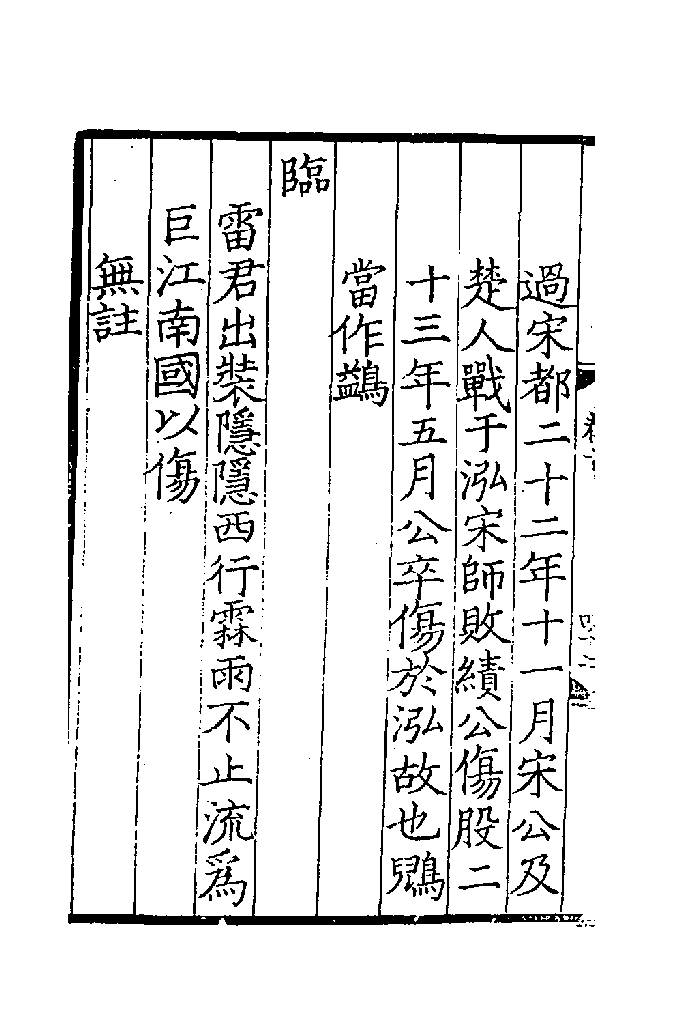 過宋都二十二年十一月宋公及
楚人戰于泓宋師敗績公傷股二
十三年五月公卒傷於泓故也鶚
當作鷁
臨
雷君出裝隱隱西行霖雨不止流爲
巨江南國以傷
無註